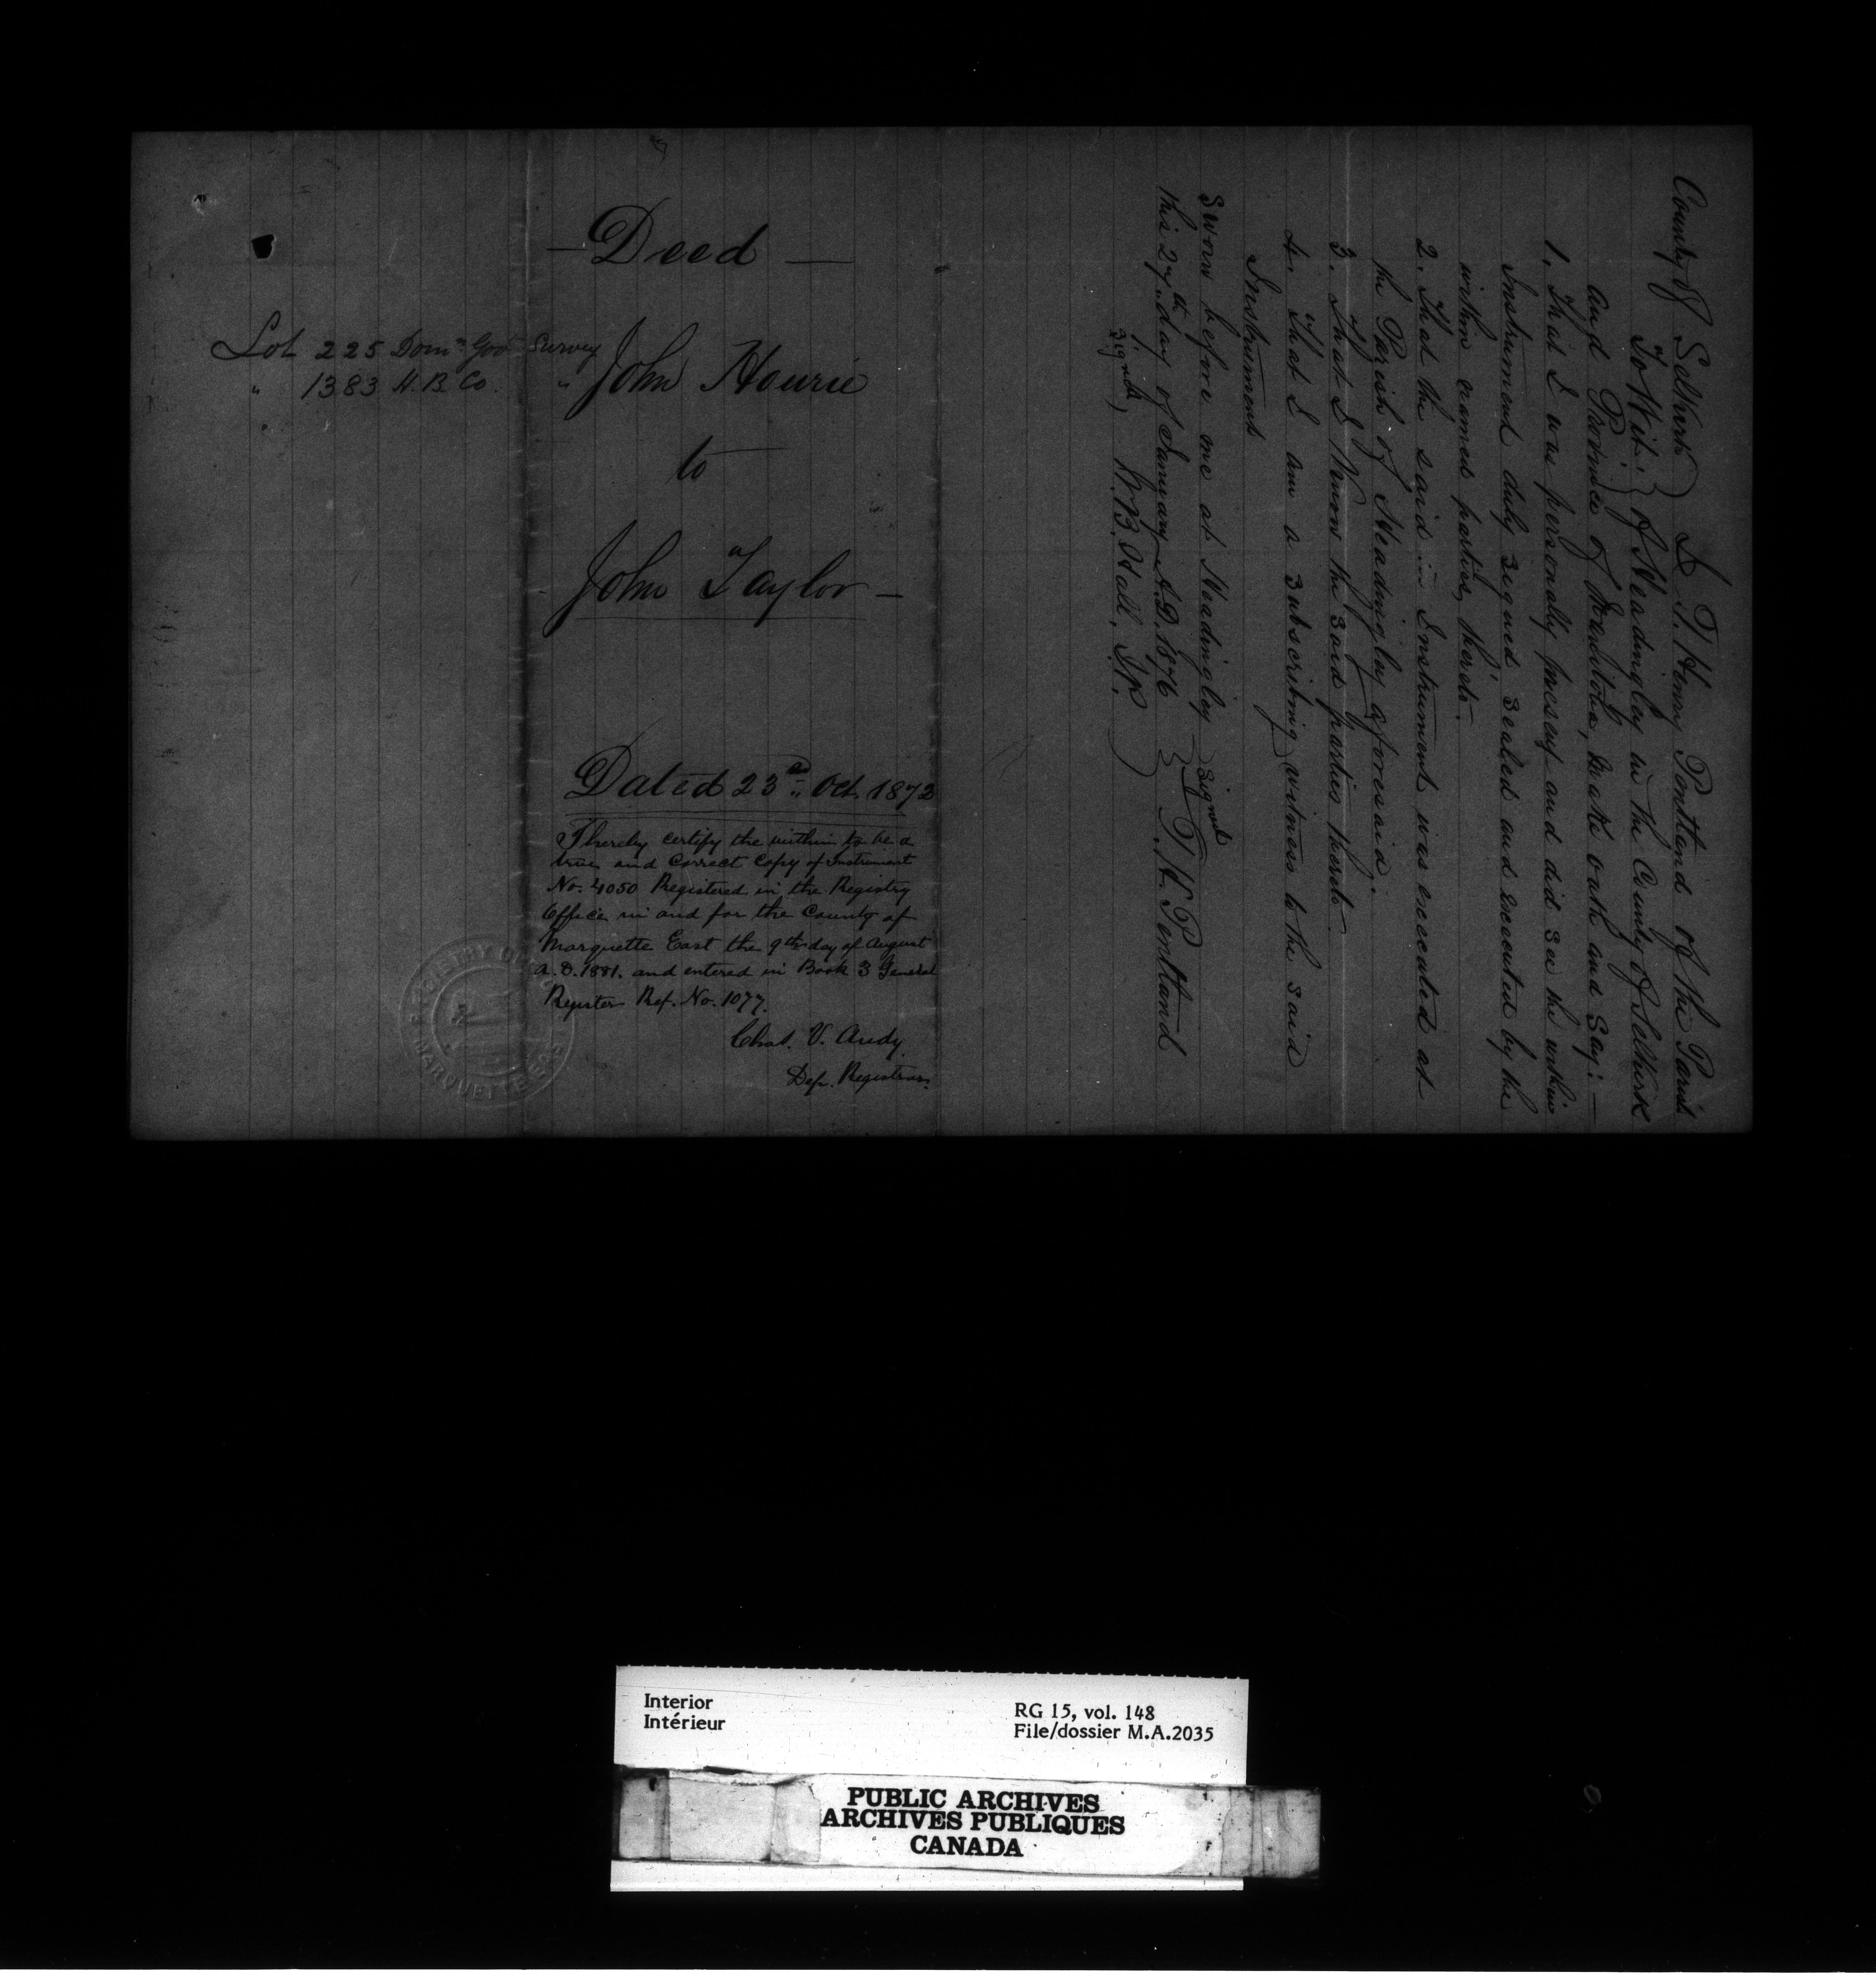 Lot 225 Domn Govt Survey
" 1383 H. B. Co. "
— Deed —
John Hourie
to
John Taylor —
Dated 23rd Oct. 1872
I hereby certify the within to be a
true and correct copy of Instrument
No. 4050 Registered in the Registry
Office in and for the County of
Marquette East the 9th day of August
A.D. 1881. and entered in Book 3 General
Register Ref. No. 1077.
Chas. V.
Dep. Registrar.
MARQUETTE EAST
County of Selkirk } I T. Henry Pentland of the Parish
To Wit: } of Headingley in the County of Selkirk
and Province of Manitoba, make oath and Say: —
1. That I was personally present and did see the within
Instrument duly signed sealed and executed by the
within named parties thereto.
2. That the said Instrument was executed at
the Parish of Headingley aforesaid.
3. That I know the said parties thereto
4. That I am a subscribing witness to the said
Instrument
Sworn before me at Headingley } Signed
this 27th day of January A.D. 1876 } T. H. Pentland
Signed, W. B. Hall, J.P. )
Interior
Intérieur
RG 15, vol. 148
File/dossier M.A.2035
PUBLIC ARCHIVES
ARCHIVES PUBLIQUES
CANADA